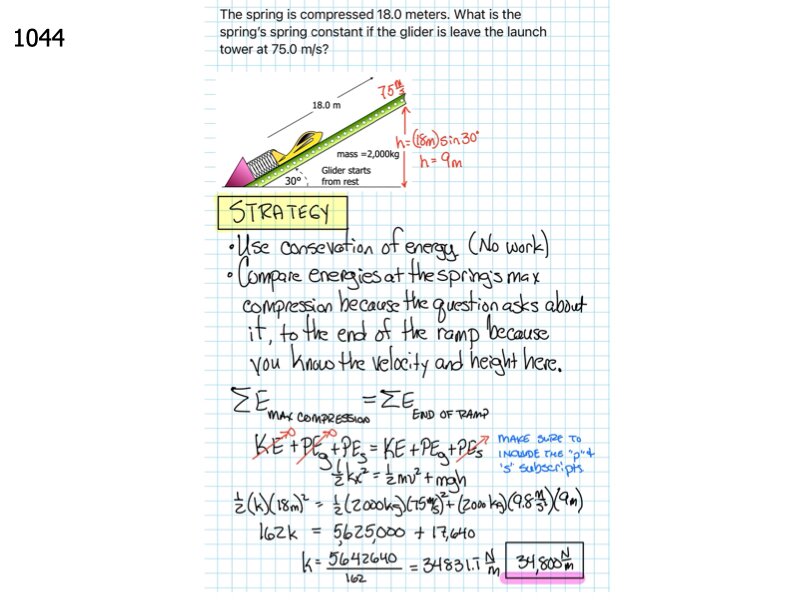 1044
The spring is compressed 18.0 meters. What is the
spring's spring constant if the glider is leave the launch
tower at 75.0 m/s?
75 m/s
18.0 m
h=(18m)sin30°
h=9m
mass =2,000kg
Glider starts
from rest
30°
STRATEGY
• Use consevation of energy (No work)
• Compare energies at the spring's max
compression because the question asks about
it, to the end of the ramp because
you know the velocity and height here.
ΣE MAX COMPRESSION = ΣE END OF RAMP
KE + PEg + PEs = KE + PEg + PEs
MAKE SURE TO
INCLUDE THE "p" &
's' subscripts
½kx² = ½mv² + mgh
½(k)(18m)² = ½(2000kg)(75 m/s)² + (2000 kg)(9.8 m/s²)(9m)
162k = 5,625,000 + 17,640
k = 5642640/162 = 34831.7 N/m 34,800 N/m